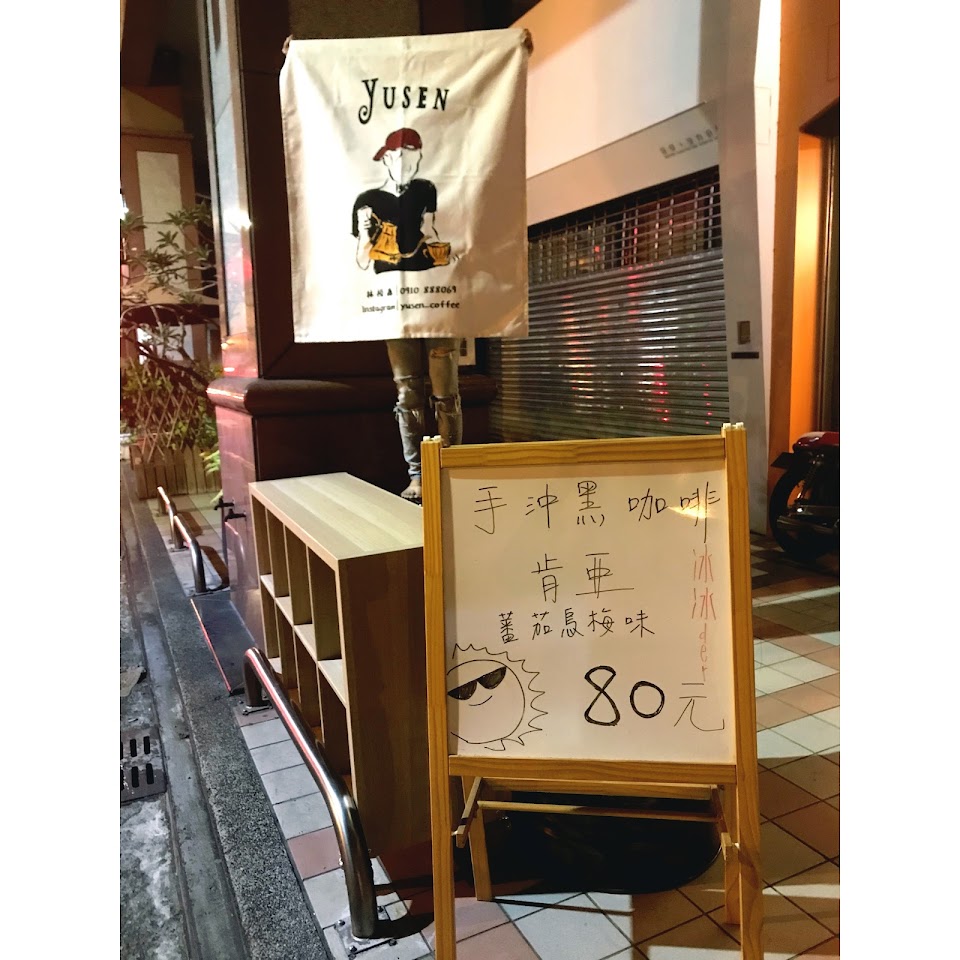 YUSEN
0910 888069
Instagram yusen_coffee
手沖黑咖啡
肯亞
蕃茄烏梅味
80元
冰冰der